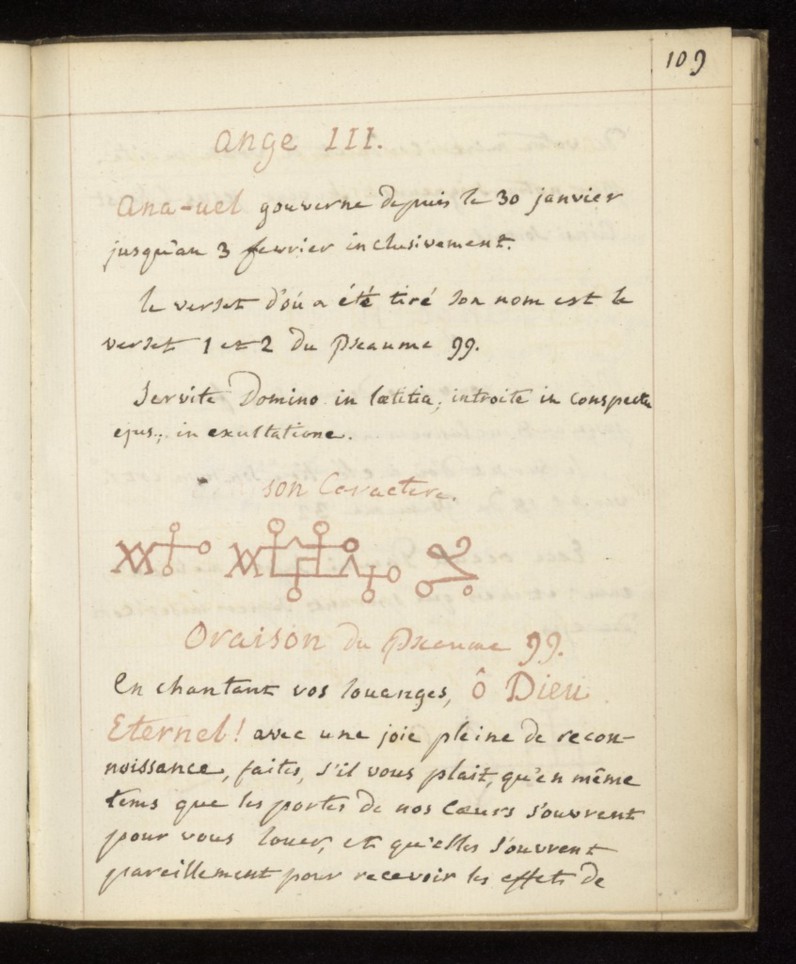 109
Ange III.
Ana-uel gouverne depuis le 30 janvier
jusqu'au 3 fevrier inclusivement.
le verset d'où a été tiré son nom est le
verset 1 et 2 du Pseaume 99.
Servite Domino in lætitia, introite in conspectu
ejus, in exultatione.
son Caractere.
Oraison du Pseaume 99.
En chantant vos louanges, ô Dieu
Eternel! avec une joie pleine de recon-
noissance, faites, s'il vous plait, qu'en même
tems que les portes de nos Cœurs s'ouvrent
pour vous louer, et qu'elles s'ouvrent
pareillement pour recevoir les effets de